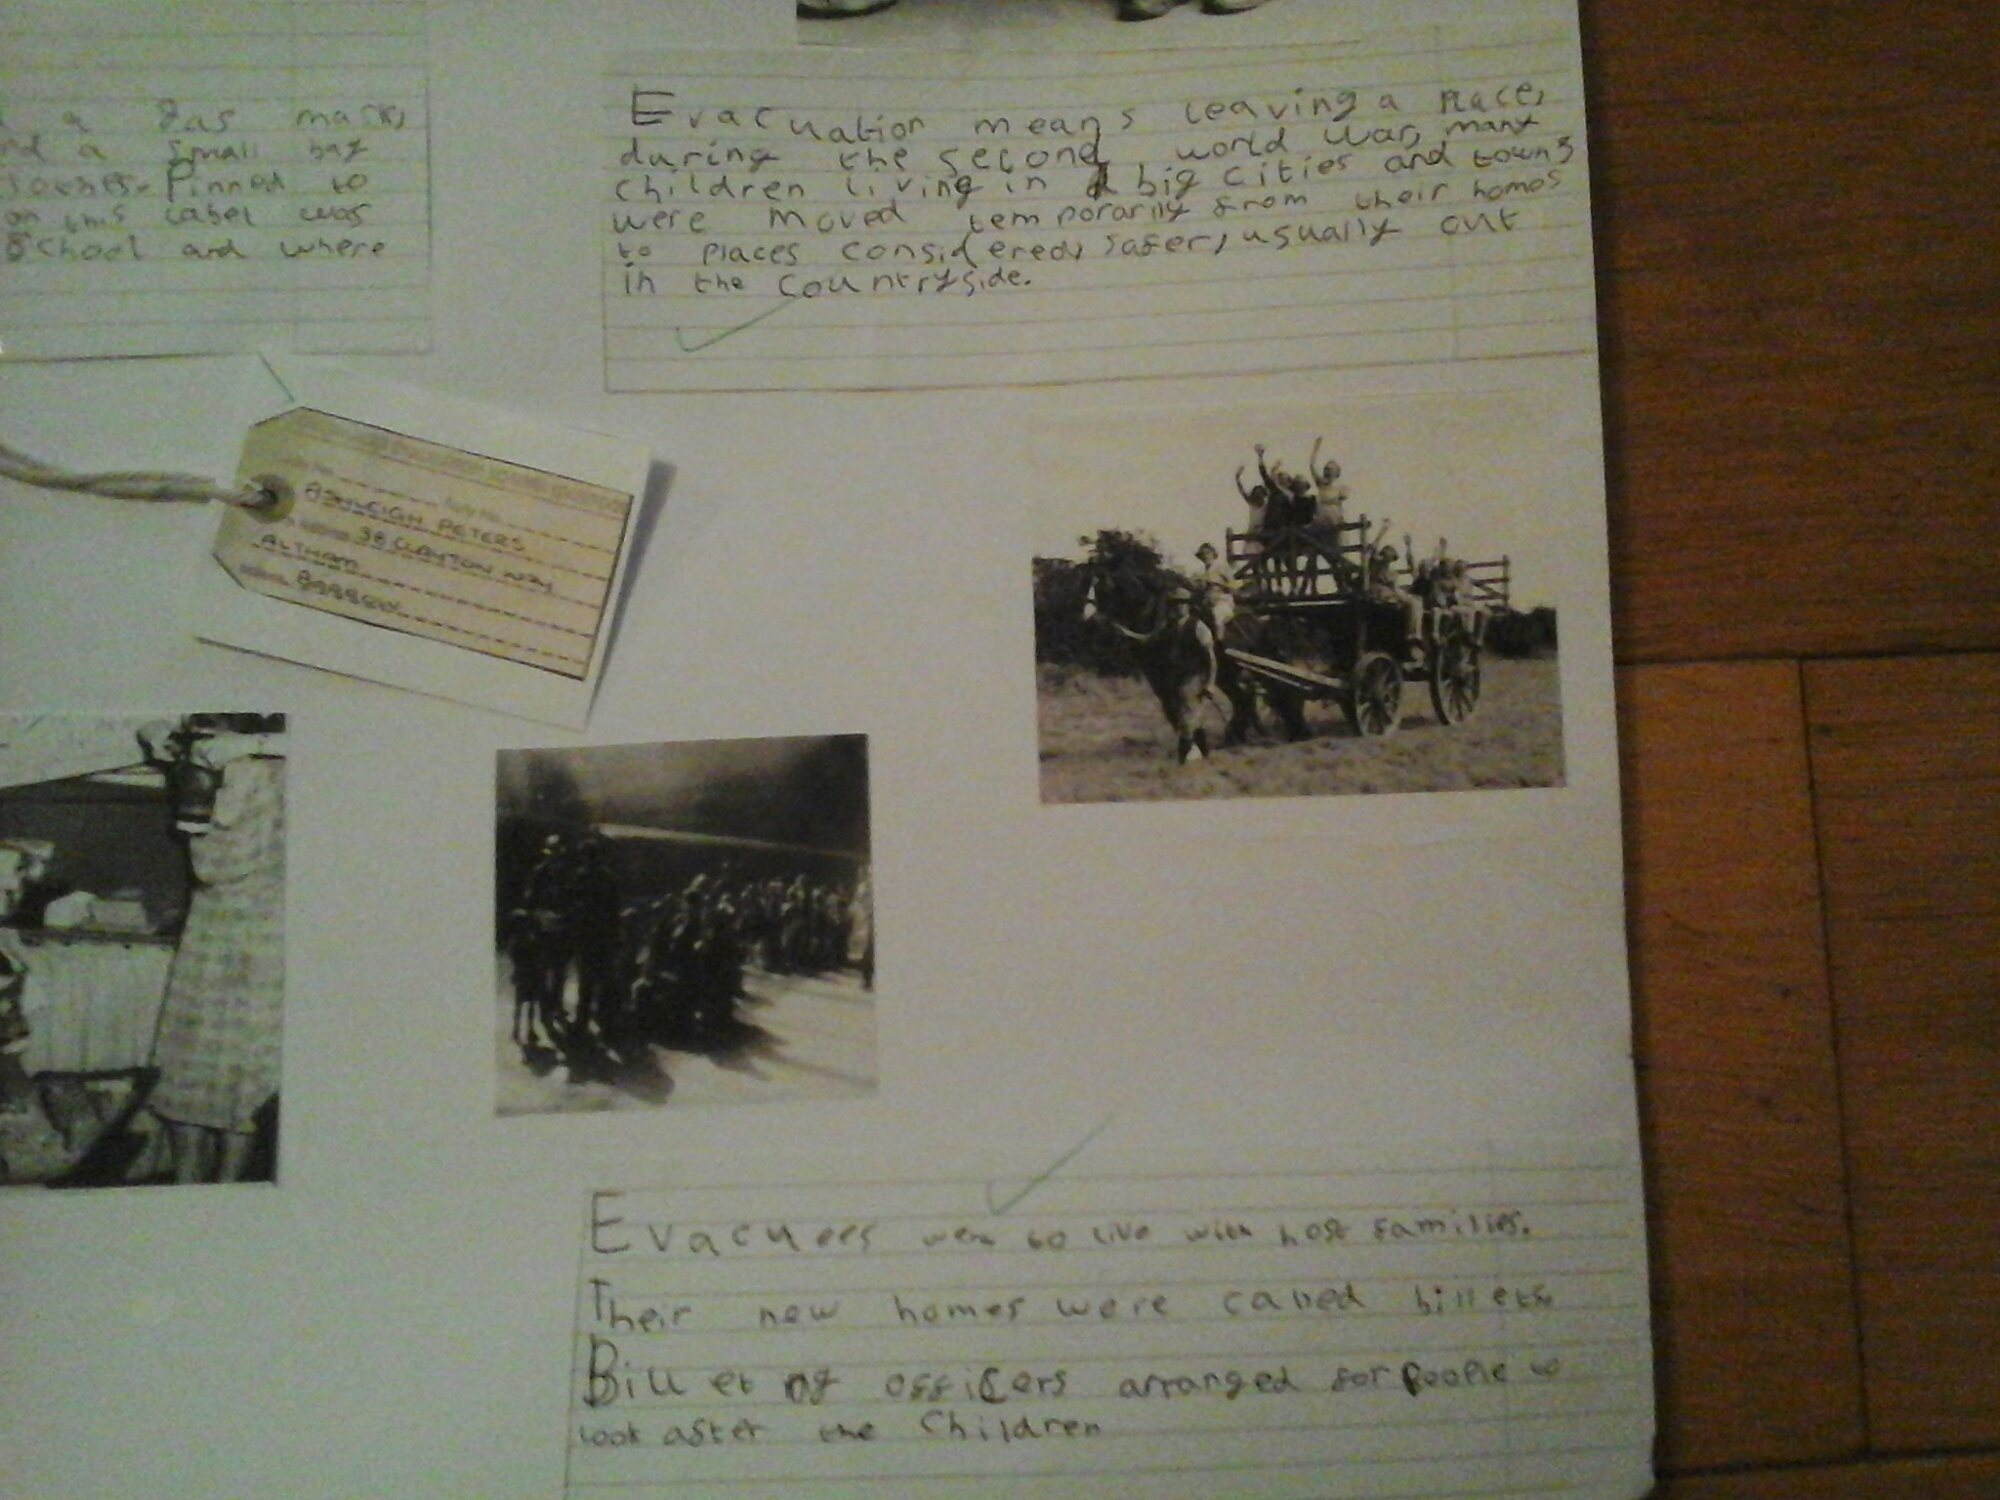 a gas mask,
nd a small bag
clothes. Pinned to
on this label was
School and where
Evacuation means leaving a place,
during the second world war, many
children living in big cities and towns
were moved temporarily from their homes
to places considered, safer, usually out
in the countryside.
PETERS
38 CLAYTON WAY
ALTHAM
Evacuees were to live with host families.
Their new homes were called billets.
Billeting officers arranged for people to
look after the Children